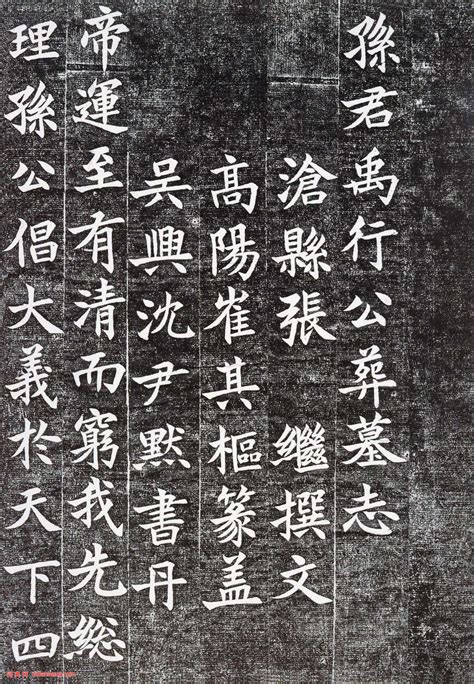 孫君禹行公葬墓志
滄縣張 繼撰文
高陽崔其樞篆盖
吴興沈尹默書丹
帝運至有清而窮我先総
理孫公倡大義於天下四